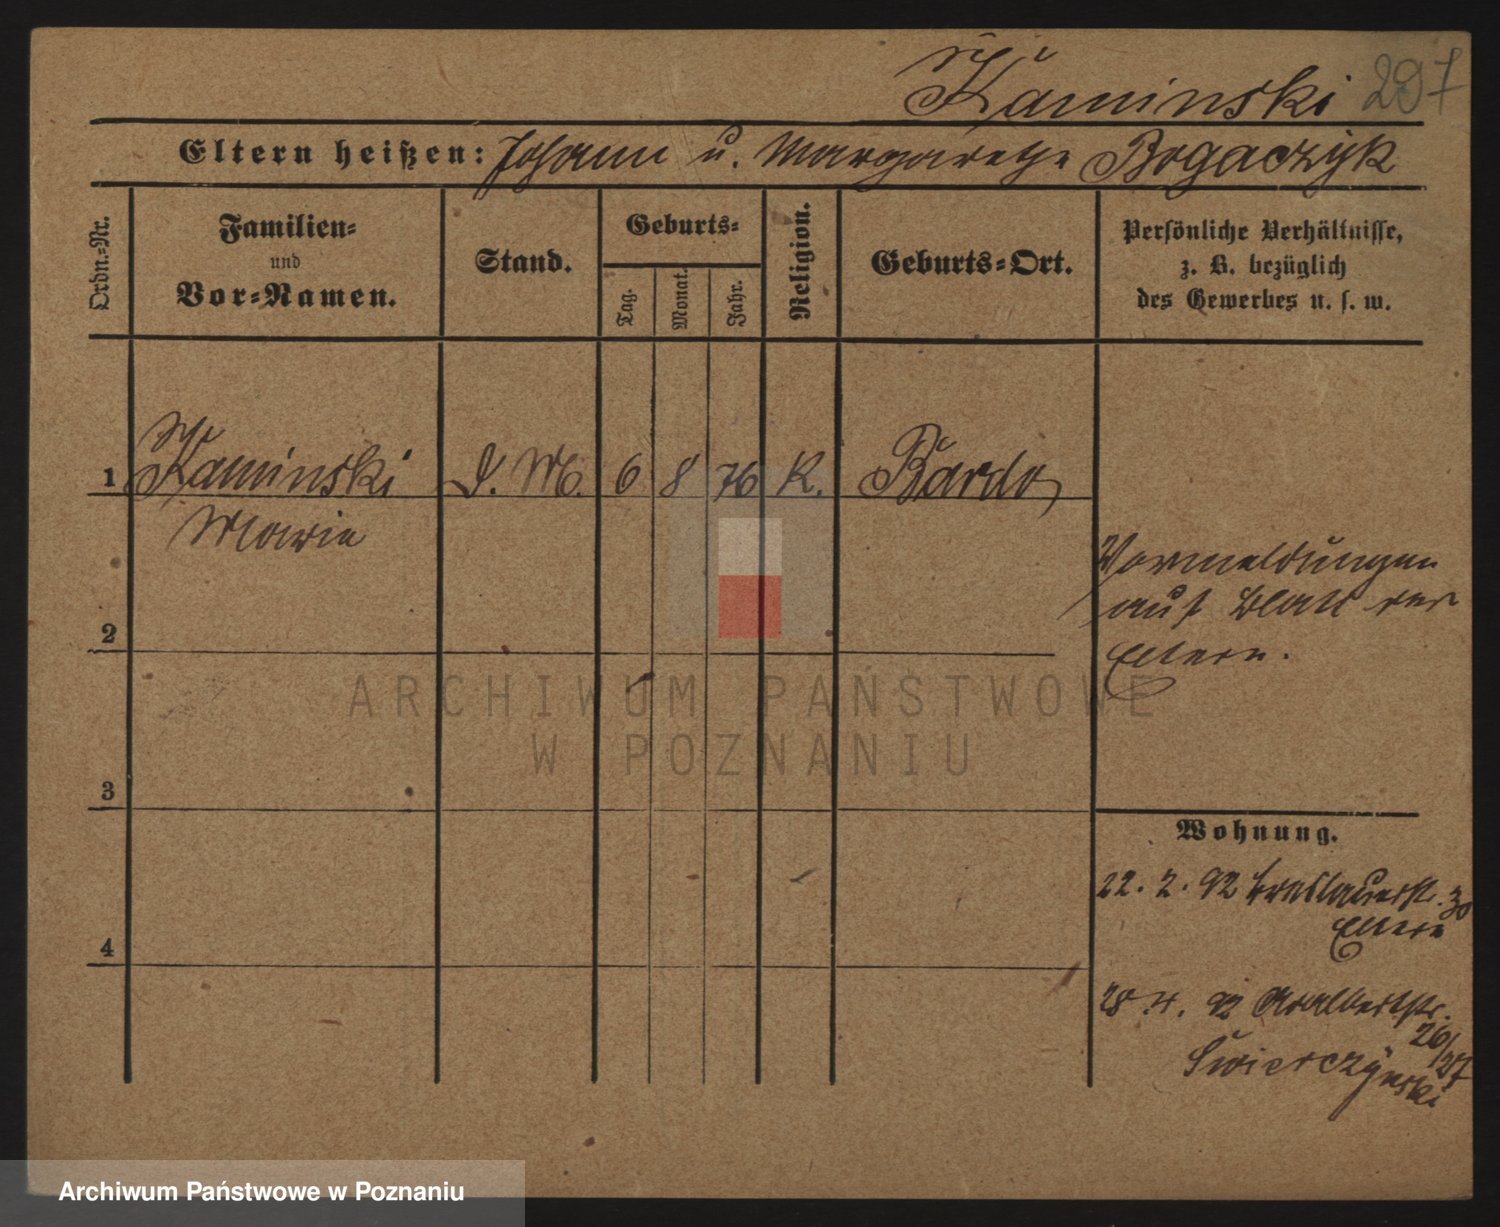 Kaminski 297
Eltern heißen: Johann u. Margarethe Bogaczyk
Ordn.-Nr.
Familien-
und
Vor-Namen.
Stand.
Geburts-
Tag.
Monat.
Jahr.
Religion.
Geburts-Ort.
Persönliche Verhältnisse,
z. B. bezüglich
des Gewerbes u. s. w.
1 Kaminski D. M. 6 8 76 K. Bardo
Marie
Vormeldungen
auf Blatt der
Eltern.
2
ARCHIWUM PAŃSTWOWE
W POZNANIU
3
Wohnung.
22. 2. 92 Breslauerstr. 30
Eltern
4
28. 4. 92 Adalbertstr.
26/27
Swierczynski
Archiwum Państwowe w Poznaniu